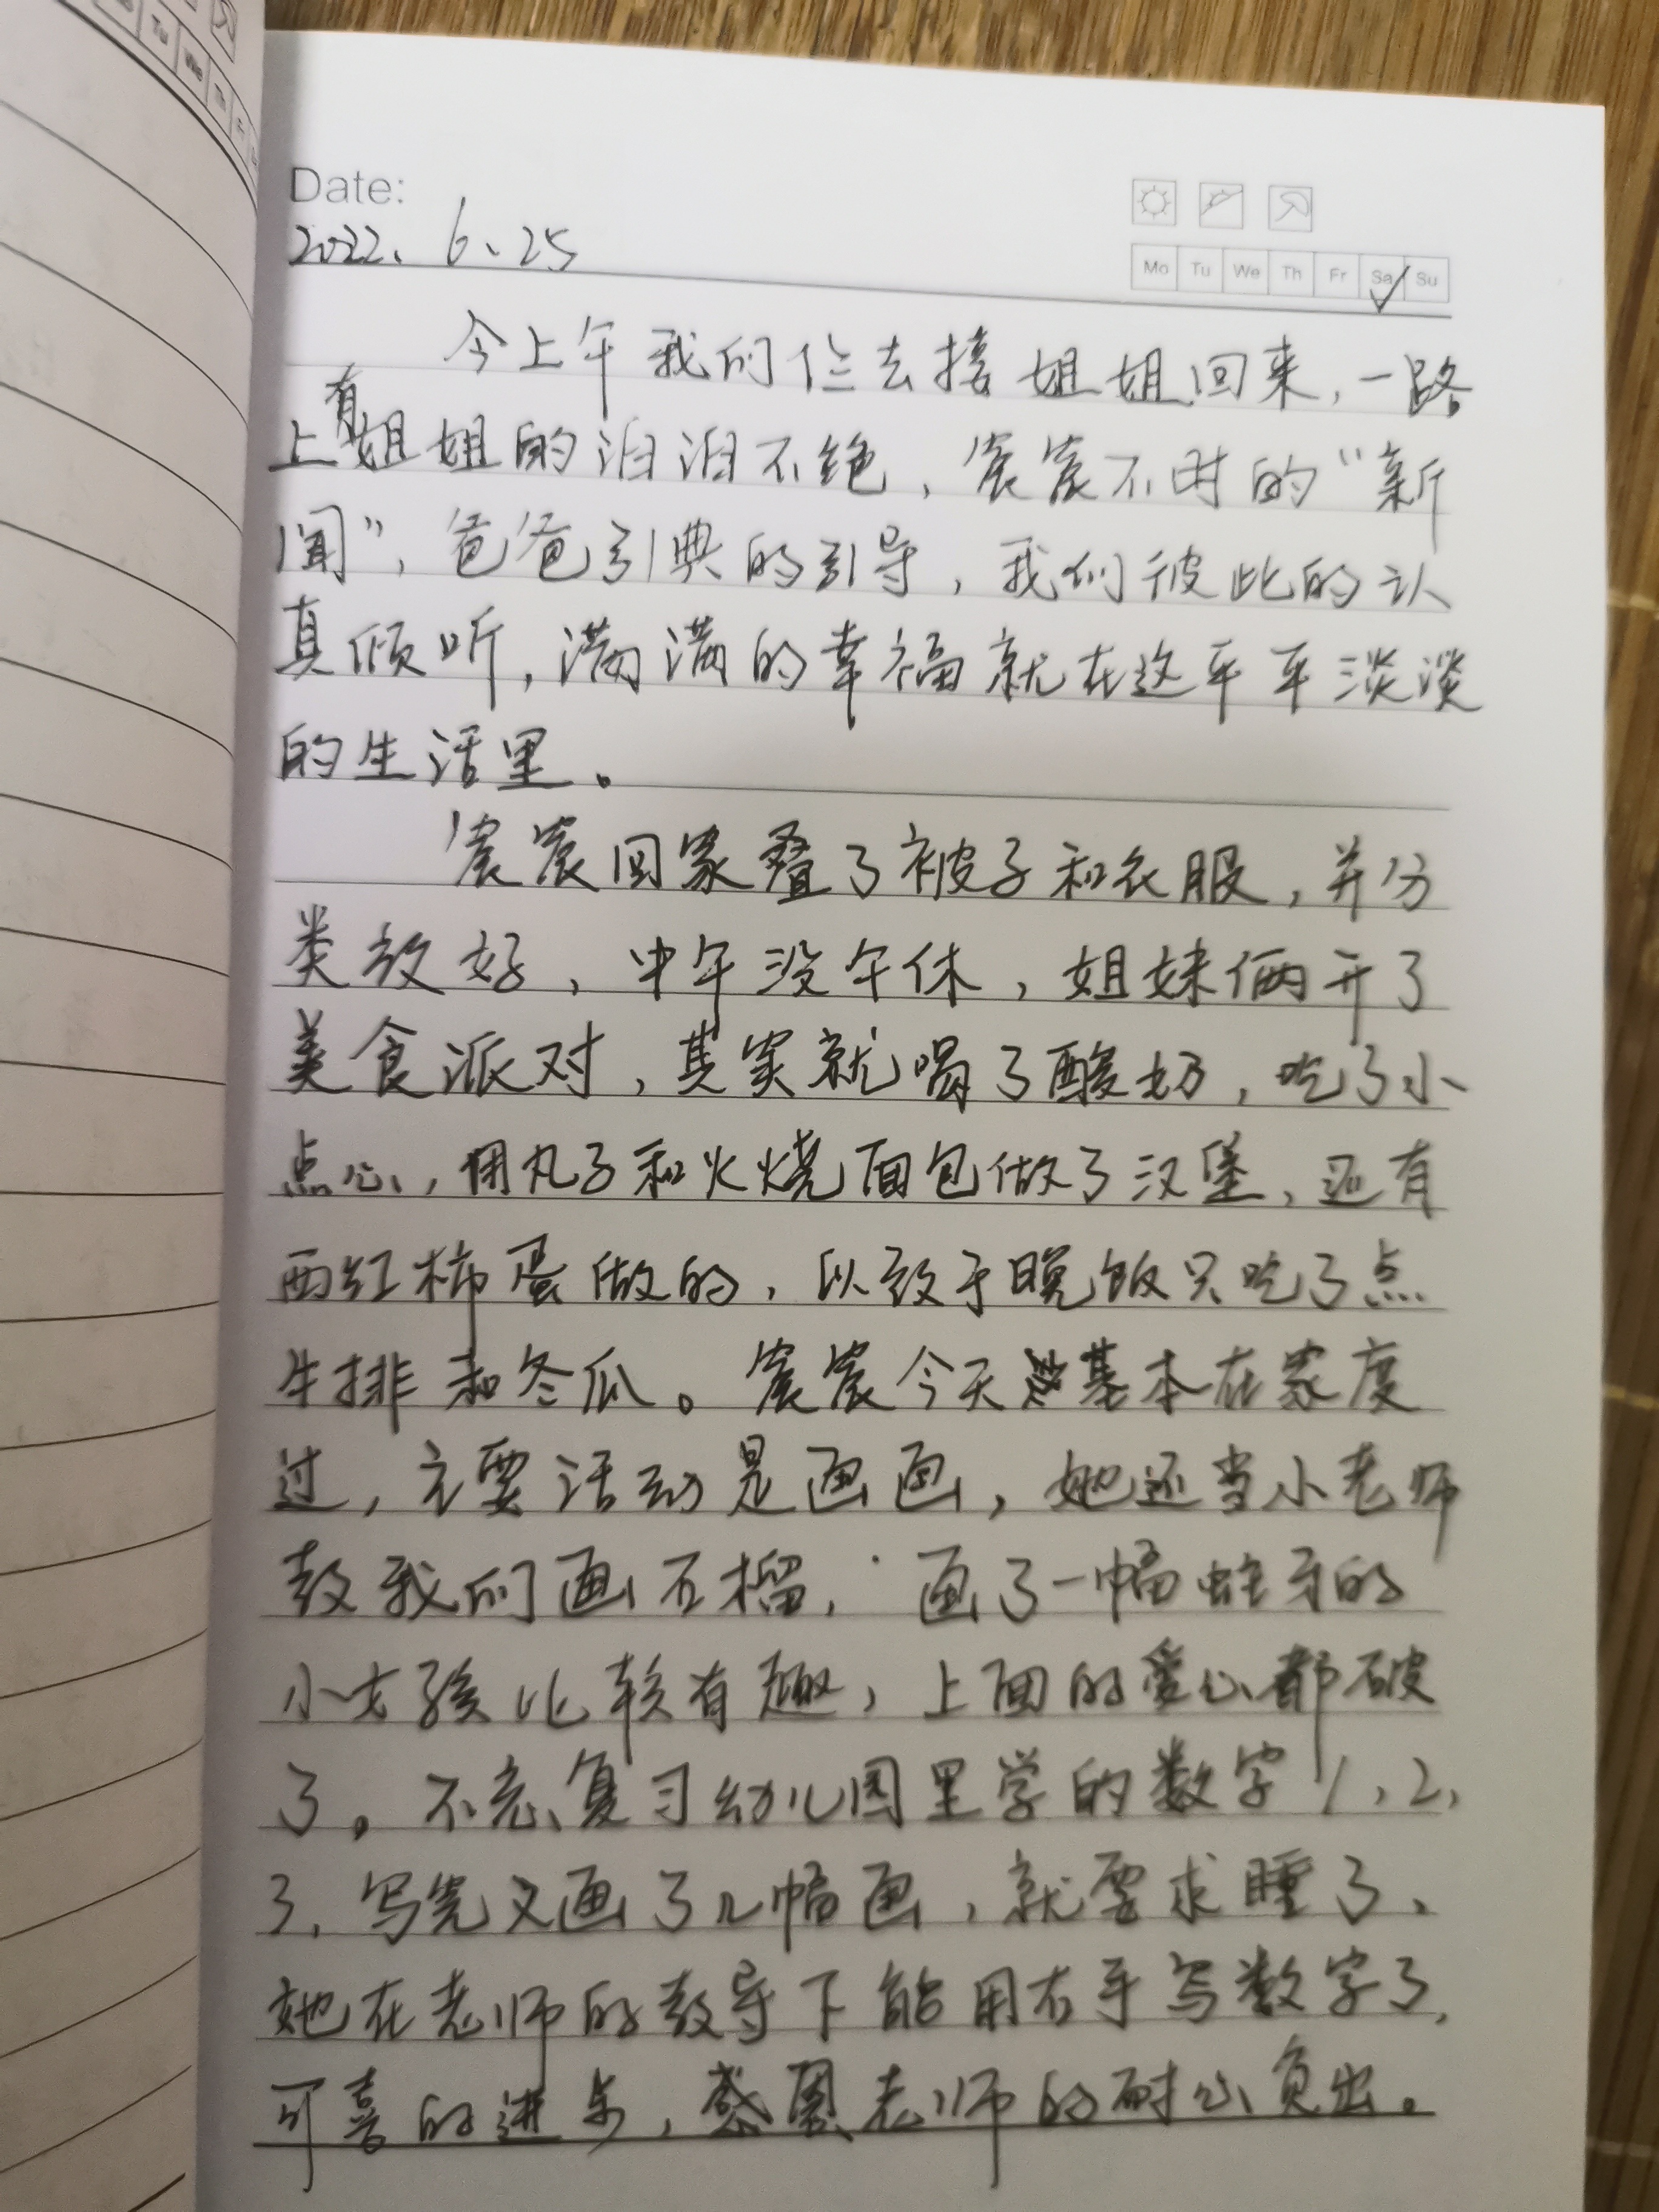 Tu We Th
Date:
2022. 6、25
Mo Tu We Th Fr Sa Su
今上午我们仨去接姐姐回来,一路
上有姐姐的滔滔不绝,宸宸不时的“新
闻”,爸爸引典的引导,我们彼此的认
真倾听,满满的幸福就在这平平淡淡
的生活里。
宸宸回家叠了被子和衣服,并分
类放好,中午没午休,姐妹俩开了
美食派对,其实就喝了酸奶,吃了小
点心,用丸子和火烧面包做了汉堡,还有
西红柿蛋做的,以致于晚饭只吃了点
牛排和冬瓜。宸宸今天基本在家度
过,主要活动是画画,她还当小老师
教我们画石榴,画了一幅蛀牙的
小女孩比较有趣,上面的爱心都破
了。不忘复习幼儿园里学的数字1、2、
3,写完又画了几幅画,就要求睡了、
她在老师的教导下能用右手写数字了,
可喜的进步,感恩老师的耐心负出。